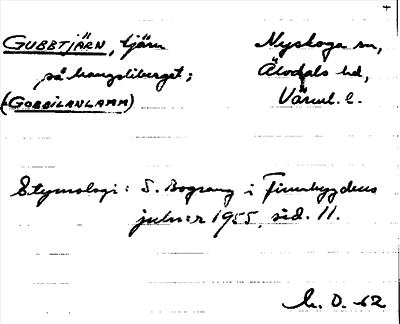 GUBBTJÄRN, tjärn
på hangsliberget;
(GOBBILANLAMM)
Nyskoga sn,
Älvdals hd,
Värml. l.
Etymologi: S. Bograng i Finnbygdens
julnr 1955, sid. 11.
h. O. -62